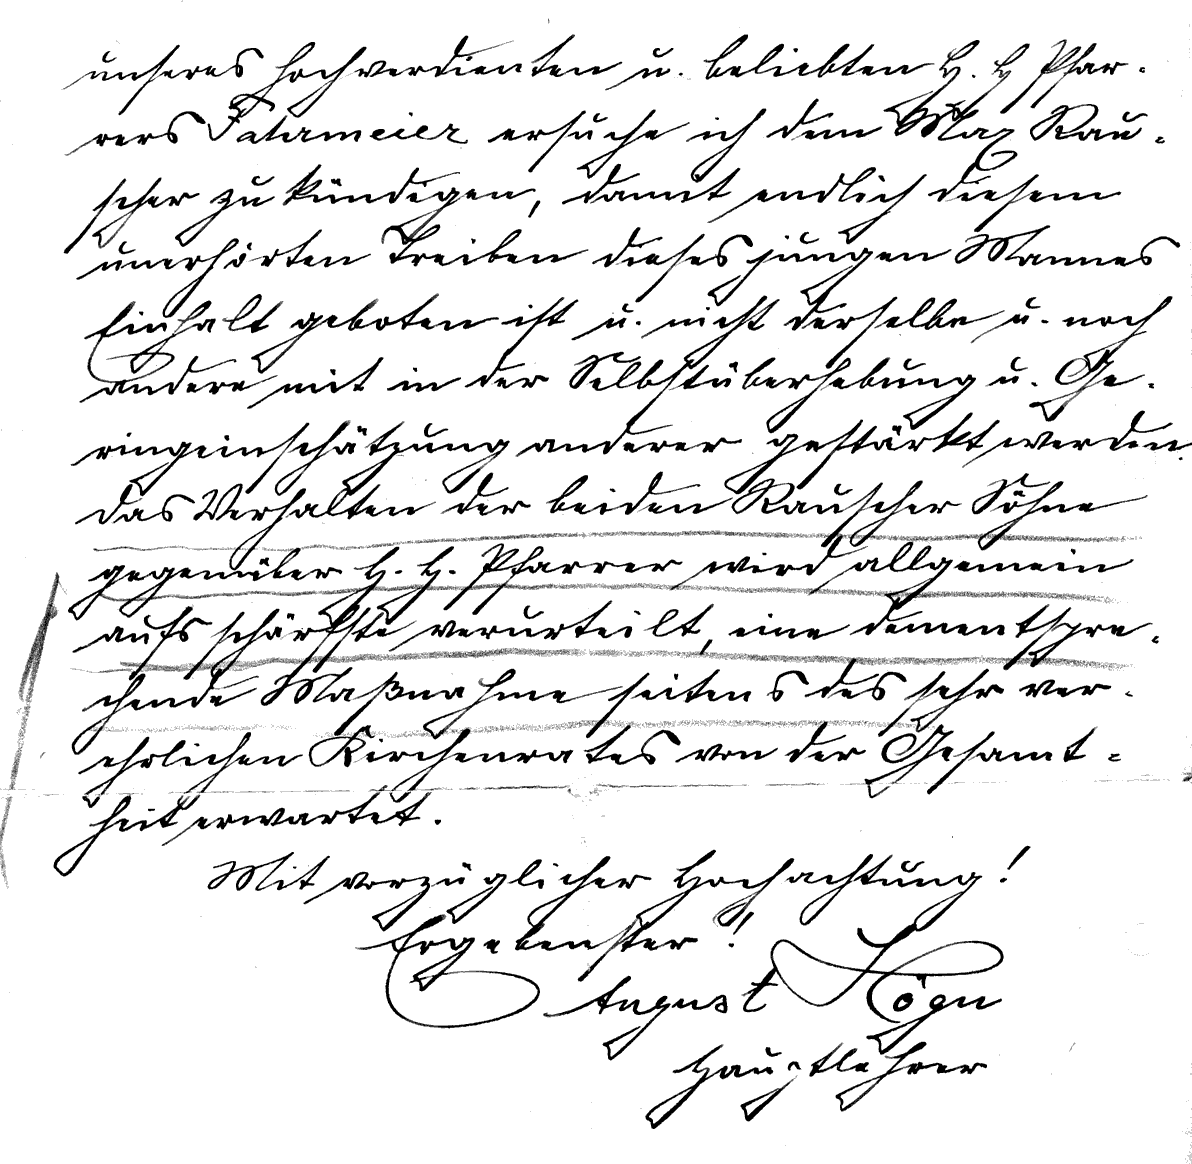 unseres hochverdienten u. beliebten H. H. Pfar-
rers Fahrmeier ersuche ich dem Max Rau-
scher zu kündigen, damit endlich diesem
unerhörten Treiben dieses jungen Mannes
Einhalt geboten ist u. nicht derselbe u. noch
andere mit in der Selbstüberhebung u. Ge-
ringeinschätzung anderer gestärkt werden.
Das Verhalten der beiden Rauscher Söhne
gegenüber H. H. Pfarrer wird allgemein
aufs schärfste verurteilt, eine dementspre-
chende Maßnahme seitens des sehr ver-
ehrlichen Kirchenrates von der Gesamt-
heit erwartet.
Mit vorzüglicher Hochachtung!
Ergebenster!
August Högn
Hauptlehrer